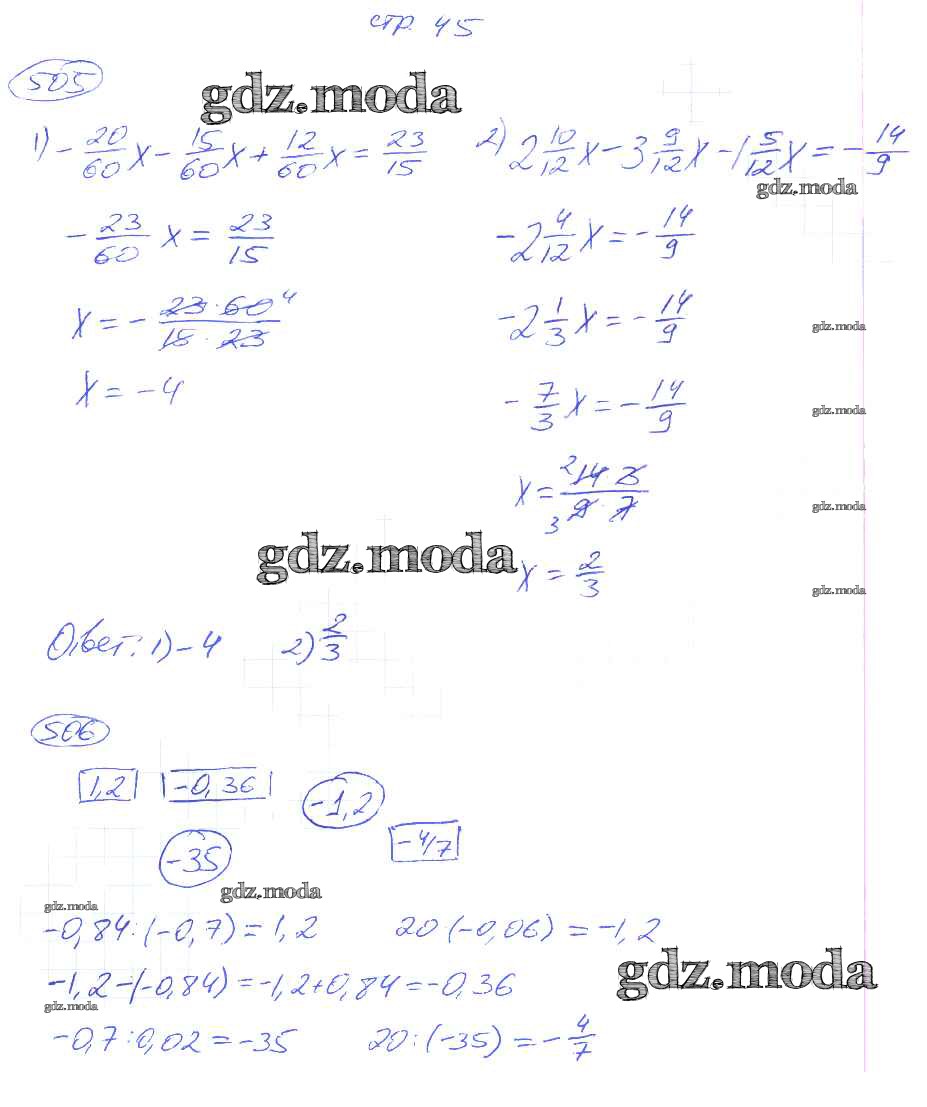 стр. 45
505
gdz.moda
1) -20/60 x - 15/60 x + 12/60 x = 23/15
-23/60 x = 23/15
x = - 23·60 4 / 15·23
x = -4
2) 2 10/12 x - 3 9/12 x - 1 5/12 x = - 14/9
gdz.moda
-2 4/12 x = - 14/9
-2 1/3 x = - 14/9
gdz.moda
- 7/3 x = - 14/9
gdz.moda
x = 2 14·3 / 3 9·7
gdz.moda
gdz.moda
x = 2/3
gdz.moda
Ответ: 1) -4 2) 2/3
506
1,2 -0,36 -1,2
-35 -4/7
gdz.moda
gdz.moda
-0,84:(-0,7) = 1,2 20·(-0,06) = -1,2
gdz.moda
-1,2-(-0,84) = -1,2+0,84 = -0,36
gdz.moda
-0,7:0,02 = -35 20:(-35) = - 4/7